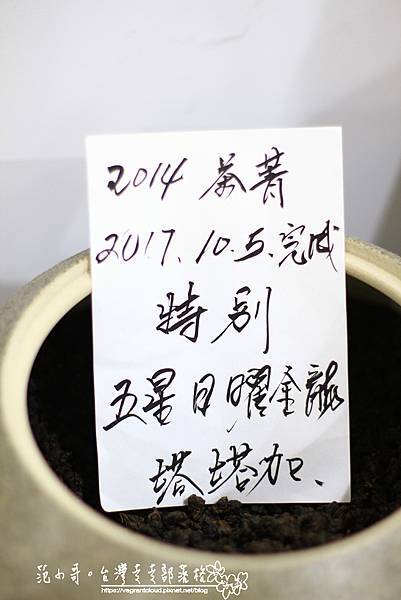 2014 茶菁
2017.10.5.完成
特别
五星日曜金龍
塔塔加、
范小哥。台灣走走部落格
https://vagrantcloud.pixnet.net/blog